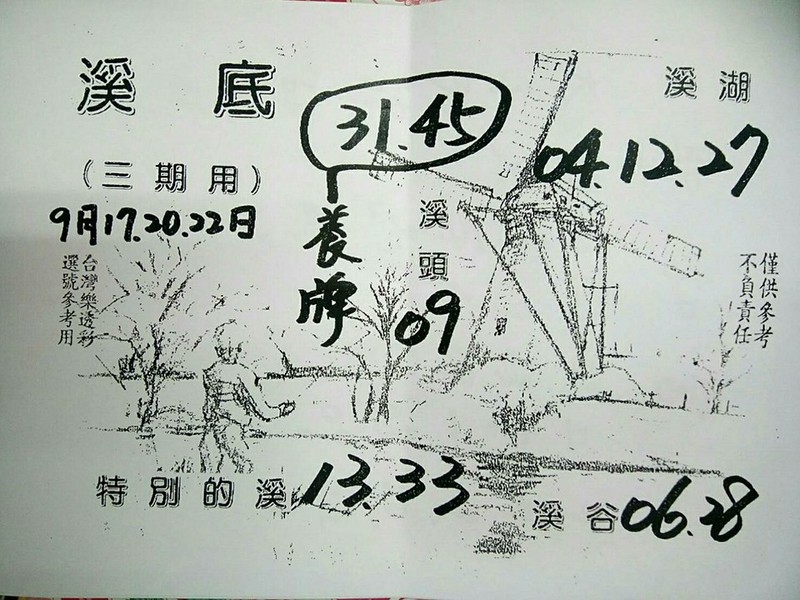 溪底
31.45
溪湖
04.12.27
(三期用)
9月17.20.22日
養牌
溪頭
09
台灣樂透彩
選號參考用
僅供參考
不負責任
特別的溪 13.33
溪谷 06.28